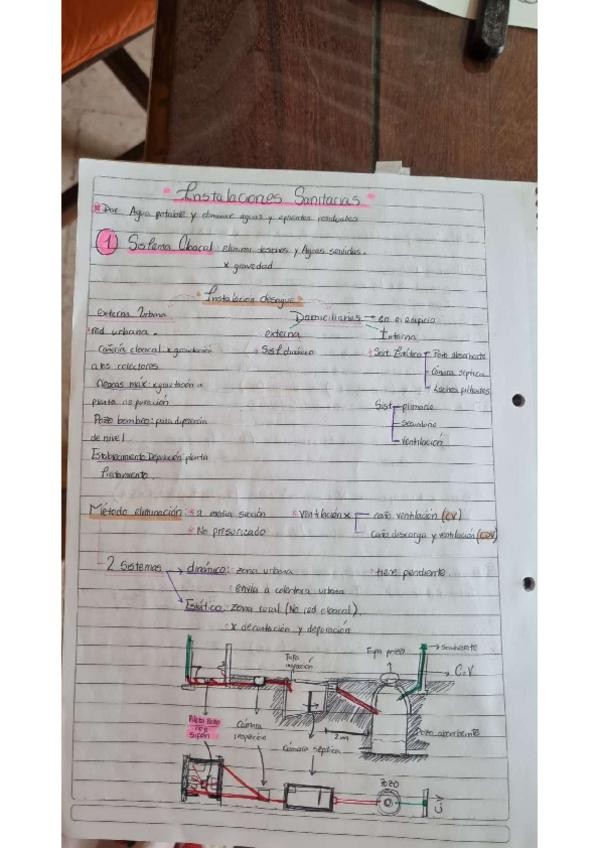 Instalaciones Sanitarias
Dar Agua potable y eliminar aguas y efluentes residuales
1 Sistema Cloacal: eliminar desechos y Aguas servidas.
x gravedad
Instalación desague
externa Urbana
Domiciliarias → en el edificio
red urbana.
externa
Interna
Cañería cloacal x gravitación
Sist dinámico
Sist. Estático
Pozo absorbente
a los colectores
Cámara séptica
Cloacas máx: x gravitación a
Lechos filtrantes
planta depuración
Sist
primario
Pozo bombeo: para diferencia
secundario
de nivel
ventilación
Establecimiento Depuración: planta
tratamiento.
Método eliminación:
No presurizado
ventilación x
caño ventilación (CV)
Caño descarga y ventilación
2 Sistemas → dinámico: zona urbana
tiene pendiente.
envia a colectora urbana
Estático: zona rural (No red cloacal).
x decantación y depuración
Tapa
inspección
Tapa
sombrerete
C.V
sifón
Cámara
inspección
Cámara séptica
2m
Pozo absorbente
POZO
C.V